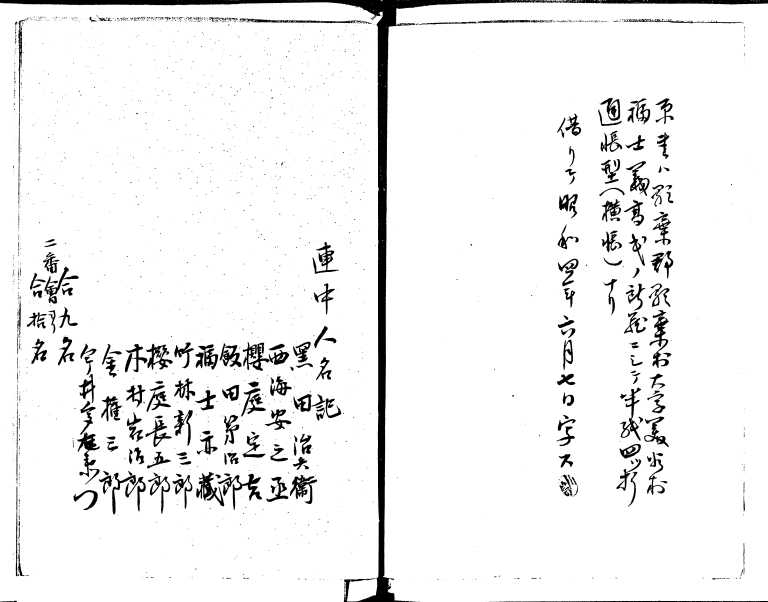 原本ハ形棄郡形棄村大字美谷村
福士義高氏ノ所蔵ニシテ半紙四ツ折
通帳型(横帳)ナリ
借リテ昭和四年六月七日写ス
連中人名記
黒田治兵衛
西海安之丞
櫻庭定吉
飯田第治郎
福士亦藏
竹林新三郎
櫻庭長五郎
木村岩治郎
金権三郎
今井多左衛門
合九名
二番會引
合拾名